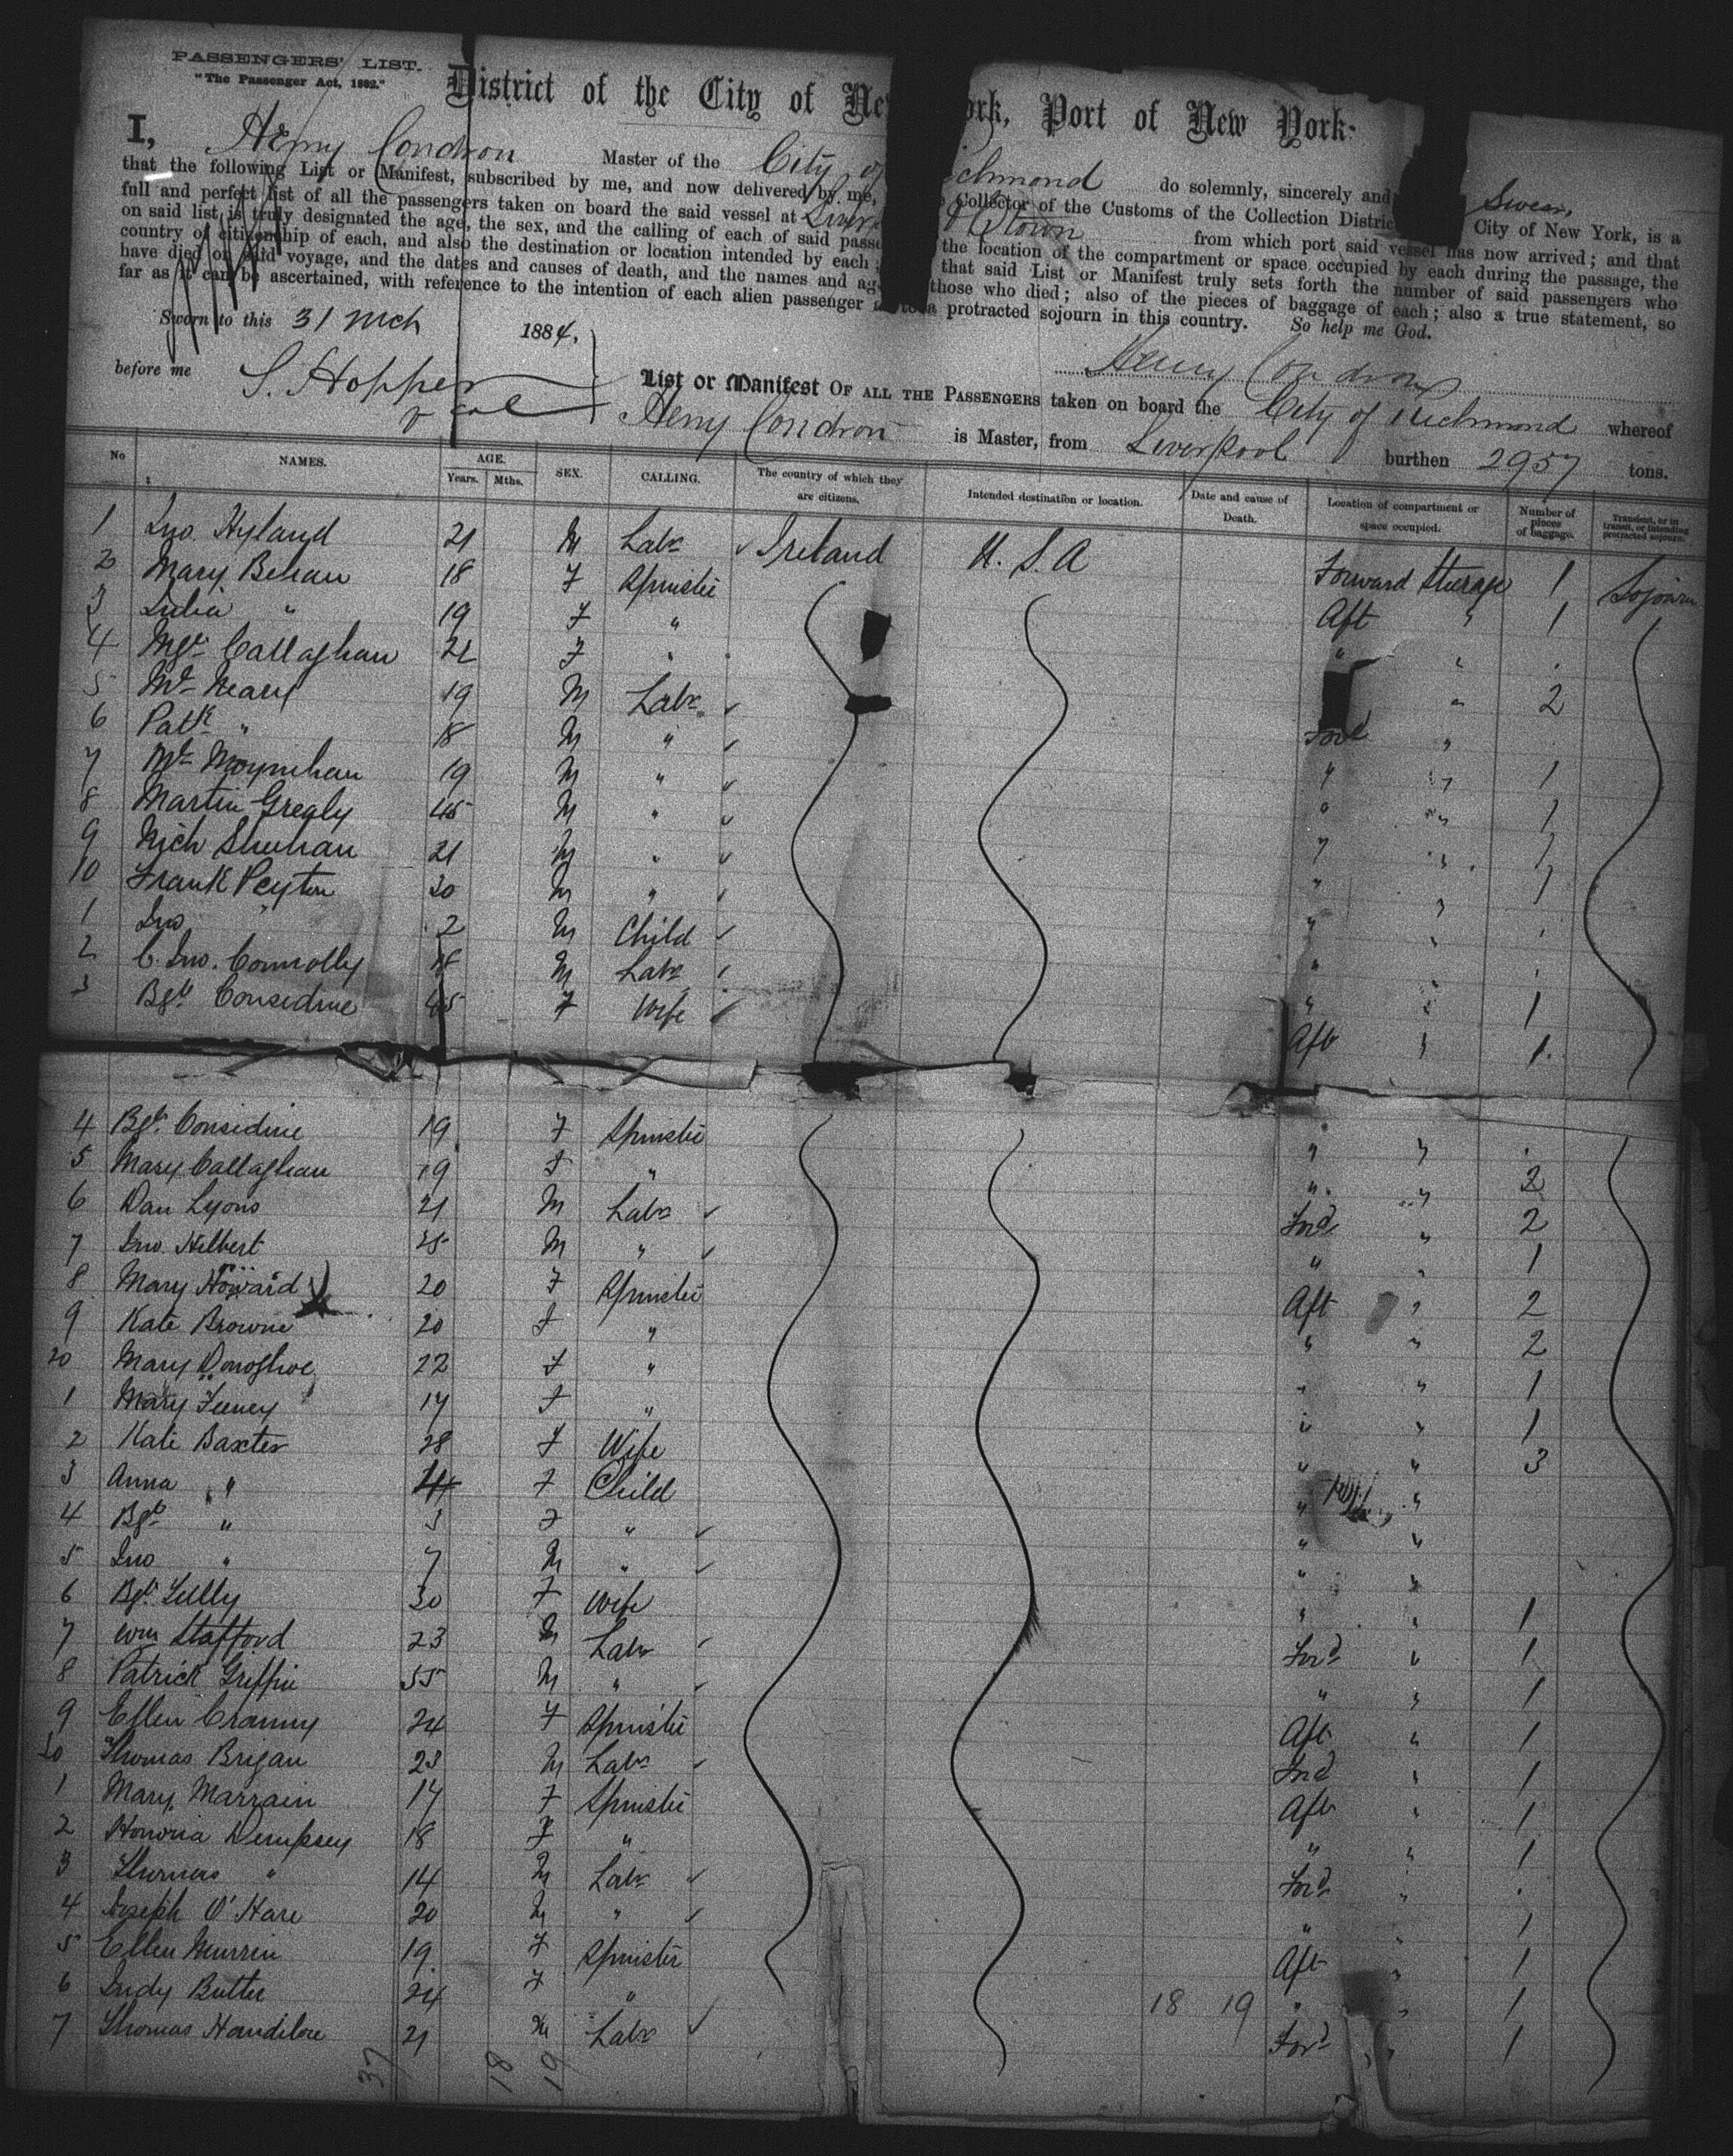 PASSENGERS' LIST.
"The Passenger Act, 1882."
District of the City of New York, Port of New York:
I, Henry Condron Master of the City of Richmond do solemnly, sincerely and Swear,
that the following List or Manifest, subscribed by me, and now delivered by me, Collector of the Customs of the Collection District City of New York, is a
full and perfect list of all the passengers taken on board the said vessel at Qtown from which port said vessel has now arrived; and that
on said list is truly designated the age, the sex, and the calling of each of said the location of the compartment or space occupied by each during the passage, the
country of citizenship of each, and also the destination or location intended by each; that said List or Manifest truly sets forth the number of said passengers who
have died on said voyage, and the dates and causes of death, and the names and those who died; also of the pieces of baggage of each; also a true statement, so
far as it can be ascertained, with reference to the intention of each alien passenger a protracted sojourn in this country. So help me God.
Sworn to this 31 Mch 1884,
Henry Condron
before me S. Hopper
List or Manifest OF ALL THE PASSENGERS taken on board the City of Richmond whereof
Henry Condron is Master, from Liverpool burthen 2957 tons.
No NAMES. AGE. Years. Mths. SEX. CALLING. The country of which they are citizens. Intended destination or location. Date and cause of Death. Location of compartment or space occupied. Number of pieces of baggage. Transient, or in transit, or intending protracted sojourn.
1 Jno. Hyland 21 M Labr Ireland U.S.A Forward Steerage 1 Sojourn
2 Mary Behan 18 F Spinster Aft " 1
3 Julia " 19 F " " "
4 Mgt Callaghan 21 F " " 2
5 Mt Neary 19 M Labr Ford "
6 Patk " 18 M " " " 1
7 Mt Moynihan 19 M " " " 1
8 Martin Grealy 45 M " " " 1
9 Mich Sheehan 21 M " " 1
10 Frank Peyton 30 M " " "
1 Jno " 2 M Child " "
2 C. Jno. Connolly 18 M Labr " " 1
3 Bgt Considine 45 F Wife Aft " 1
4 Bgt. Considine 19 F Spinster " "
5 Mary Callaghan 19 F " " " 2
6 Dan Lyons 21 M Labr Ford " 2
7 Jno. Hilbert 25 M " " " 1
8 Mary Howard 20 F Spinster Aft " 2
9 Kate Browne 20 F " " " 2
20 Mary Donoghoe 22 F " " " 1
1 Mary Feeney 17 F " " " 1
2 Kate Baxter 28 F Wife " " 3
3 Anna " F Child " "
4 Bgt " 3 F " " "
5 Jno " 7 M " " "
6 Bgt. Lilly 30 F Wife " " 1
7 Wm Stafford 23 M Labr Ford " 1
8 Patrick Griffin 55 M " " " 1
9 Ellen Cranny 24 F Spinster Aft " 1
30 Thomas Brigan 23 M Labr Ford " 1
1 Mary Marrain 17 F Spinster Aft " 1
2 Honoria Dempsey 18 F " " " 1
3 Thomas " 14 M Labr Ford "
4 Joseph O'Hare 20 M " " " 1
5 Ellen Murrin 19 F Spinster Aft " 1
6 Judy Butler 24 F " 18 19 " " 1
7 Thomas Handilon 21 M Labr Ford " 1
37 18 19